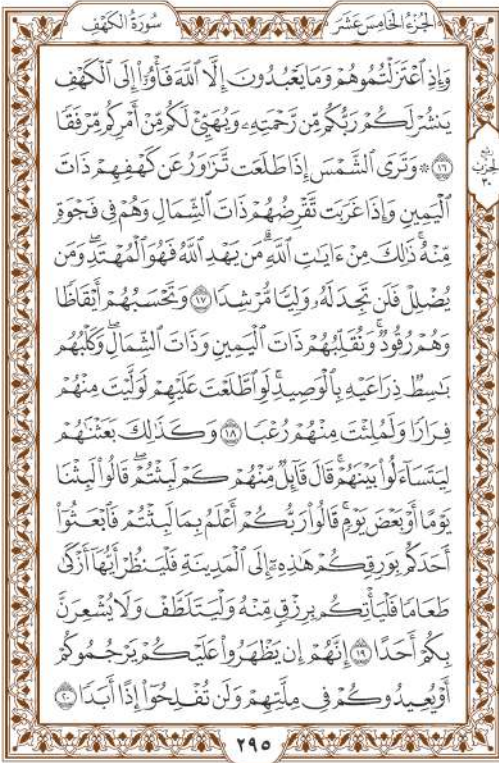 الجُزْءُ الخَامِسَ عَشَرَ سُورَةُ الكَهْفِ
وَإِذِ ٱعْتَزَلْتُمُوهُمْ وَمَا يَعْبُدُونَ إِلَّا ٱللَّهَ فَأْوُۥٓا۟ إِلَى ٱلْكَهْفِ
يَنشُرْ لَكُمْ رَبُّكُم مِّن رَّحْمَتِهِۦ وَيُهَيِّئْ لَكُم مِّنْ أَمْرِكُم مِّرْفَقًا
١٦ ۞ وَتَرَى ٱلشَّمْسَ إِذَا طَلَعَت تَّزَٰوَرُ عَن كَهْفِهِمْ ذَاتَ
ٱلْيَمِينِ وَإِذَا غَرَبَت تَّقْرِضُهُمْ ذَاتَ ٱلشِّمَالِ وَهُمْ فِى فَجْوَةٍ
مِّنْهُ ۚ ذَٰلِكَ مِنْ ءَايَـٰتِ ٱللَّهِ ۗ مَن يَهْدِ ٱللَّهُ فَهُوَ ٱلْمُهْتَدِ ۖ وَمَن
يُضْلِلْ فَلَن تَجِدَ لَهُۥ وَلِيًّا مُّرْشِدًا ١٧ وَتَحْسَبُهُمْ أَيْقَاظًا
وَهُمْ رُقُودٌ ۚ وَنُقَلِّبُهُمْ ذَاتَ ٱلْيَمِينِ وَذَاتَ ٱلشِّمَالِ ۖ وَكَلْبُهُم
بَـٰسِطٌ ذِرَاعَيْهِ بِٱلْوَصِيدِ ۚ لَوِ ٱطَّلَعْتَ عَلَيْهِمْ لَوَلَّيْتَ مِنْهُمْ
فِرَارًا وَلَمُلِئْتَ مِنْهُمْ رُعْبًا ١٨ وَكَذَٰلِكَ بَعَثْنَـٰهُمْ
لِيَتَسَآءَلُوا۟ بَيْنَهُمْ ۚ قَالَ قَآئِلٌ مِّنْهُمْ كَمْ لَبِثْتُمْ ۖ قَالُوا۟ لَبِثْنَا
يَوْمًا أَوْ بَعْضَ يَوْمٍ ۚ قَالُوا۟ رَبُّكُمْ أَعْلَمُ بِمَا لَبِثْتُمْ فَٱبْعَثُوٓا۟
أَحَدَكُم بِوَرِقِكُمْ هَـٰذِهِۦٓ إِلَى ٱلْمَدِينَةِ فَلْيَنظُرْ أَيُّهَآ أَزْكَىٰ
طَعَامًا فَلْيَأْتِكُم بِرِزْقٍ مِّنْهُ وَلْيَتَلَطَّفْ وَلَا يُشْعِرَنَّ
بِكُمْ أَحَدًا ١٩ إِنَّهُمْ إِن يَظْهَرُوا۟ عَلَيْكُمْ يَرْجُمُوكُمْ
أَوْ يُعِيدُوكُمْ فِى مِلَّتِهِمْ وَلَن تُفْلِحُوٓا۟ إِذًا أَبَدًا ٢٠
ربع
الحزب
٣٠
٢٩٥